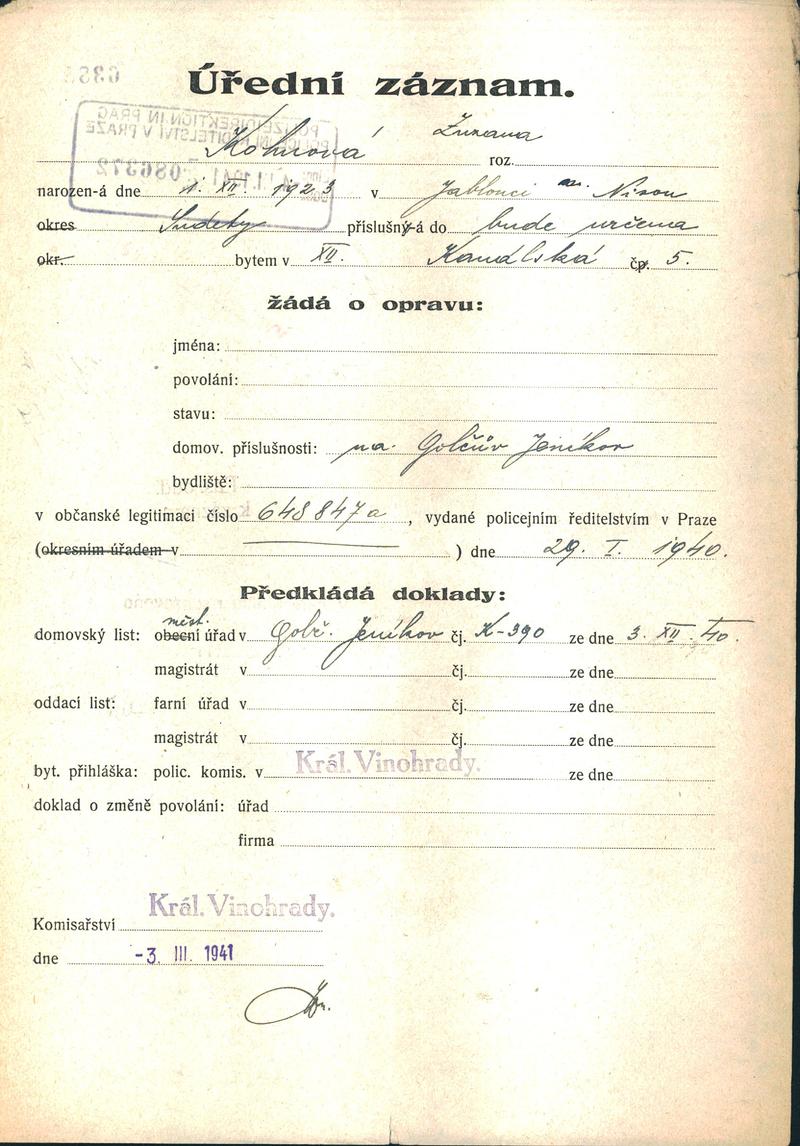 Úřední záznam.
Kohnová Zuzana
roz.
narozen-á dne 1. XII. 1923 v Jablonci n. Nisou
okres Sudety příslušný-á do bude určena
okr. bytem v XII. Kanálská čp. 5.
žádá o opravu:
jména:
povolání:
stavu:
domov. příslušnosti: na Golčův Jeníkov
bydliště:
v občanské legitimaci číslo 648847a, vydané policejním ředitelstvím v Praze
(okresním úřadem v ) dne 29. I. 1940.
Předkládá doklady:
měst.
domovský list: obecní úřad v Golč. Jeníkov čj. K-390 ze dne 3. XII. 40.
magistrát v čj. ze dne
oddací list: farní úřad v čj. ze dne
magistrát v čj. ze dne
byt. přihláška: polic. komis. v Král. Vinohrady. ze dne
doklad o změně povolání: úřad
firma
Komisařství Král. Vinohrady.
dne -3. III. 1941